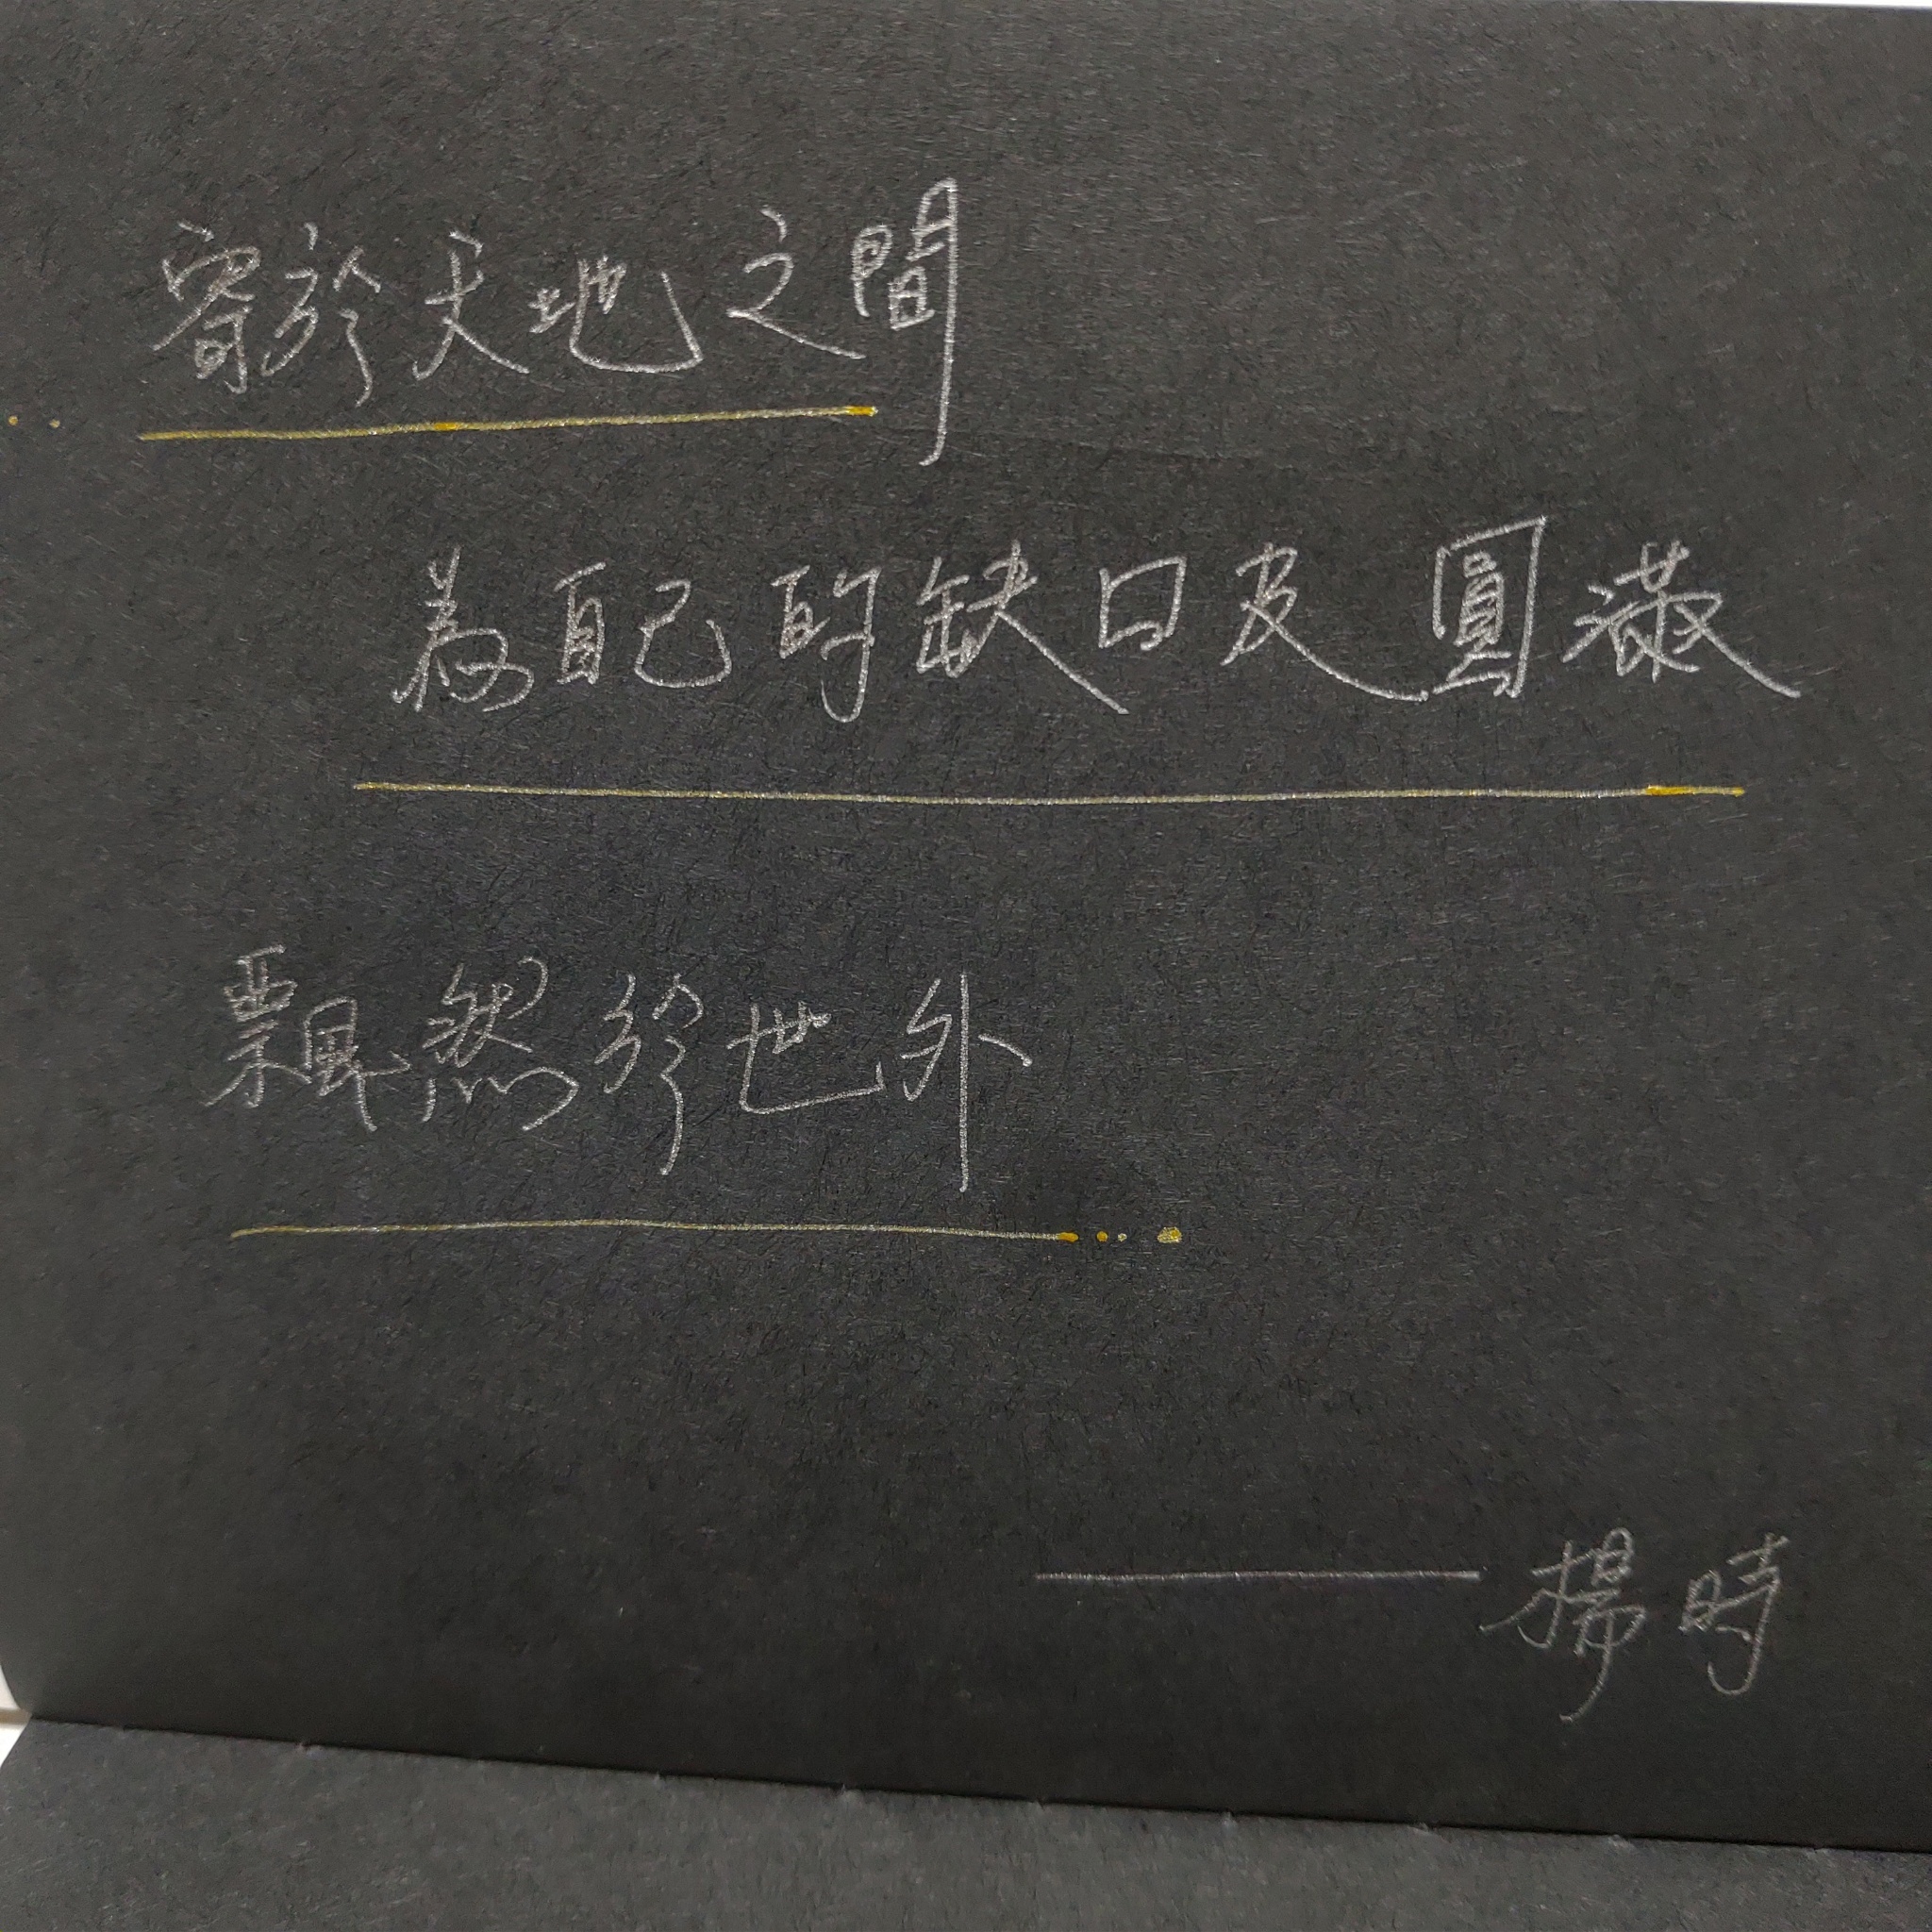 寄於天地之間
為自己的缺口及圓滿
飄然於世外
楊時